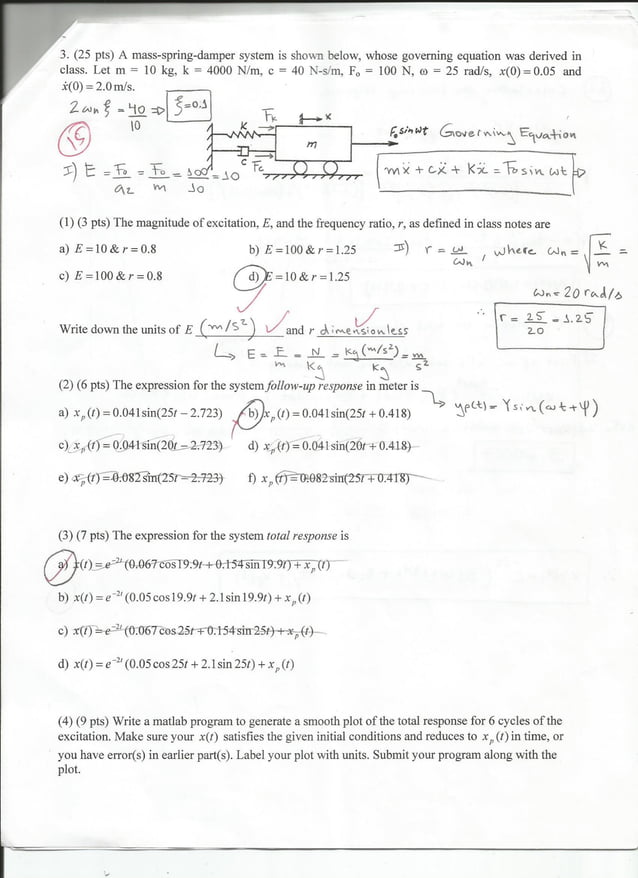 3. (25 pts) A mass-spring-damper system is shown below, whose governing equation was derived in
class. Let m = 10 kg, k = 4000 N/m, c = 40 N-s/m, F₀ = 100 N, ω = 25 rad/s, x(0) = 0.05 and
ẋ(0) = 2.0 m/s.
2ωn ξ = 40/10 => ξ=0.1
15
K
Fk
x
m
c
Fc
F₀ sin wt
Governing Equation
mẍ + cẍ + Kẍ = Fo sin ωt =>
I) E = Fo/a2 = Fo/m = 100/10 = 10
(1) (3 pts) The magnitude of excitation, E, and the frequency ratio, r, as defined in class notes are
a) E = 10 & r = 0.8
b) E = 100 & r = 1.25
c) E = 100 & r = 0.8
d) E = 10 & r = 1.25
II) r = ω/ωn , where ωn = √(K/m) =
ωn = 20 rad/s
∴ r = 25/20 = 1.25
Write down the units of E (m/s²) and r dimensionless
↳ E = F/m = N/Kg = Kg(m/s²)/Kg = m/s²
(2) (6 pts) The expression for the system follow-up response in meter is
↳ yp(t) = Y sin(ωt + ψ)
a) xₚ(t) = 0.041sin(25t − 2.723)
b) xₚ(t) = 0.041sin(25t + 0.418)
c) xₚ(t) = 0.041sin(20t − 2.723)
d) xₚ(t) = 0.041sin(20t + 0.418)
e) xₚ(t) = 0.082sin(25t − 2.723)
f) xₚ(t) = 0.082sin(25t + 0.418)
(3) (7 pts) The expression for the system total response is
a) x(t) = e⁻²ᵗ(0.067cos19.9t + 0.154sin19.9t) + xₚ(t)
b) x(t) = e⁻²ᵗ(0.05cos19.9t + 2.1sin19.9t) + xₚ(t)
c) x(t) = e⁻²ᵗ(0.067cos25t + 0.154sin25t) + xₚ(t)
d) x(t) = e⁻²ᵗ(0.05cos25t + 2.1sin25t) + xₚ(t)
(4) (9 pts) Write a matlab program to generate a smooth plot of the total response for 6 cycles of the
excitation. Make sure your x(t) satisfies the given initial conditions and reduces to xₚ(t) in time, or
you have error(s) in earlier part(s). Label your plot with units. Submit your program along with the
plot.